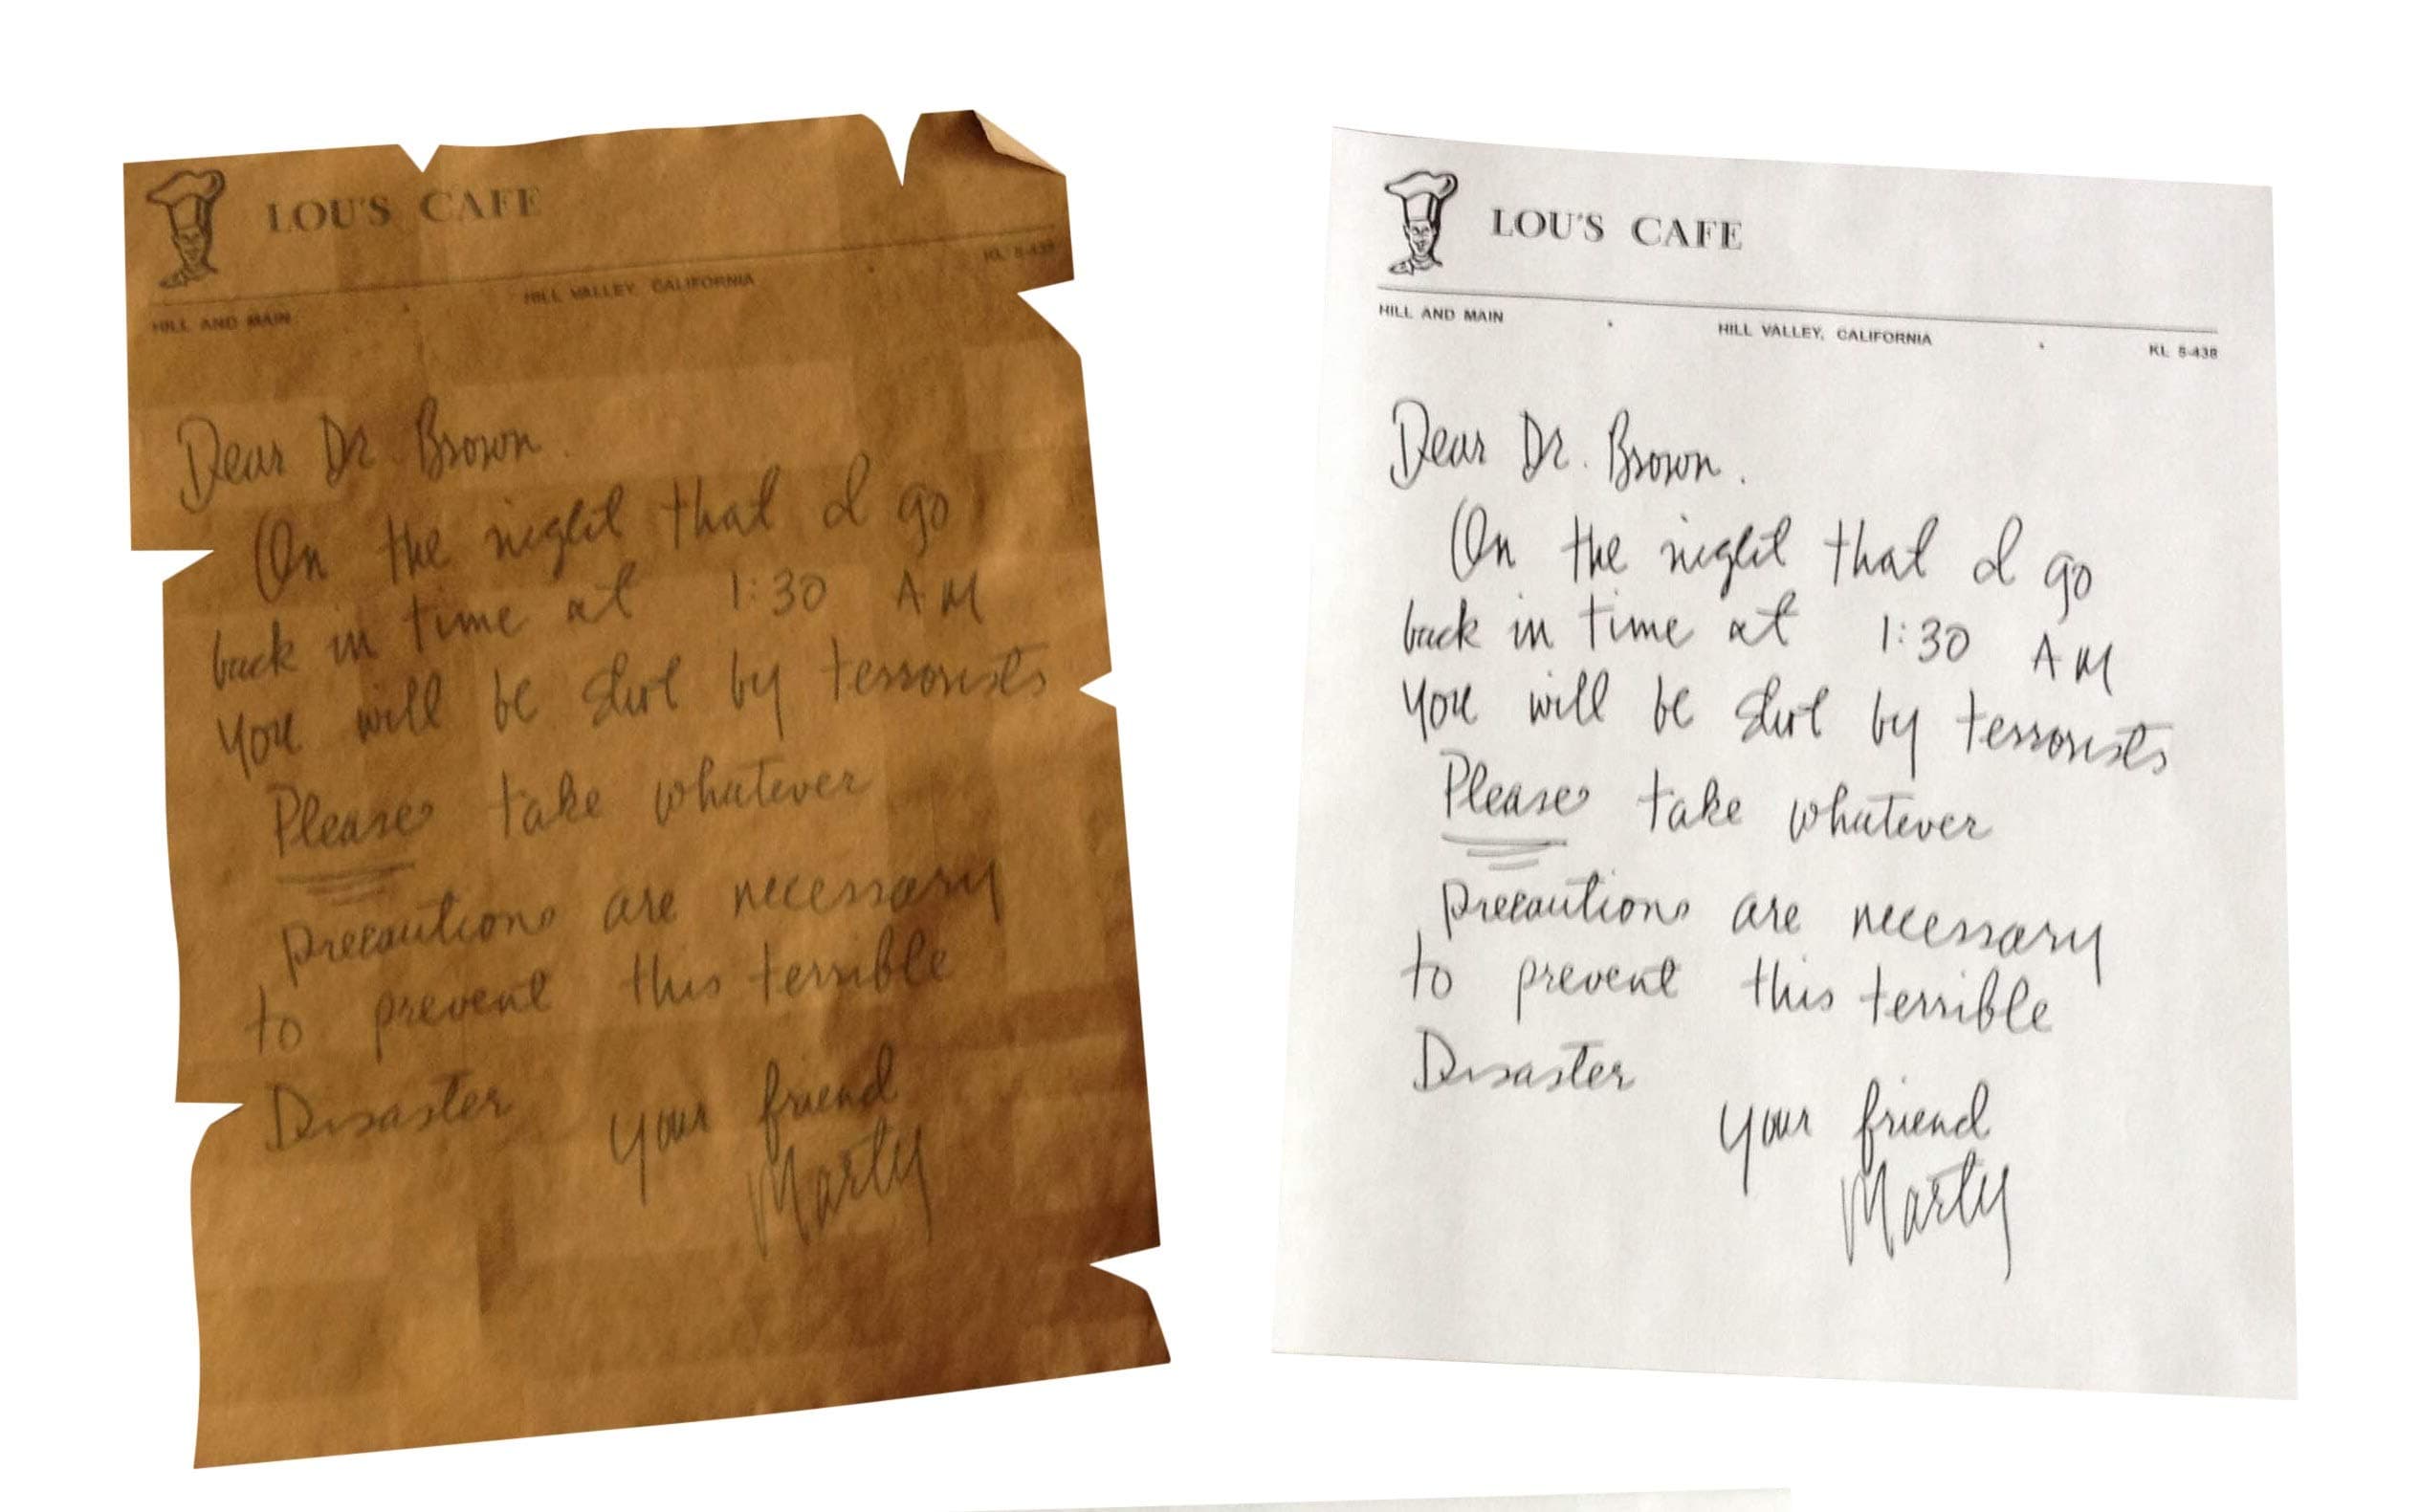 LOU'S CAFE
HILL AND MAIN • HILL VALLEY, CALIFORNIA • KL 5-438
Dear Dr Brown.
On the night that I go
back in time at 1:30 AM
you will be shot by terrorists
Please take whatever
precautions are necessary
to prevent this terrible
Disaster
your friend
Marty
LOU'S CAFE
HILL AND MAIN • HILL VALLEY, CALIFORNIA • KL 5-438
Dear Dr. Brown.
On the night that I go
back in time at 1:30 AM
you will be shot by terrorists
Please take whatever
precautions are necessary
to prevent this terrible
Disaster
your friend
Marty